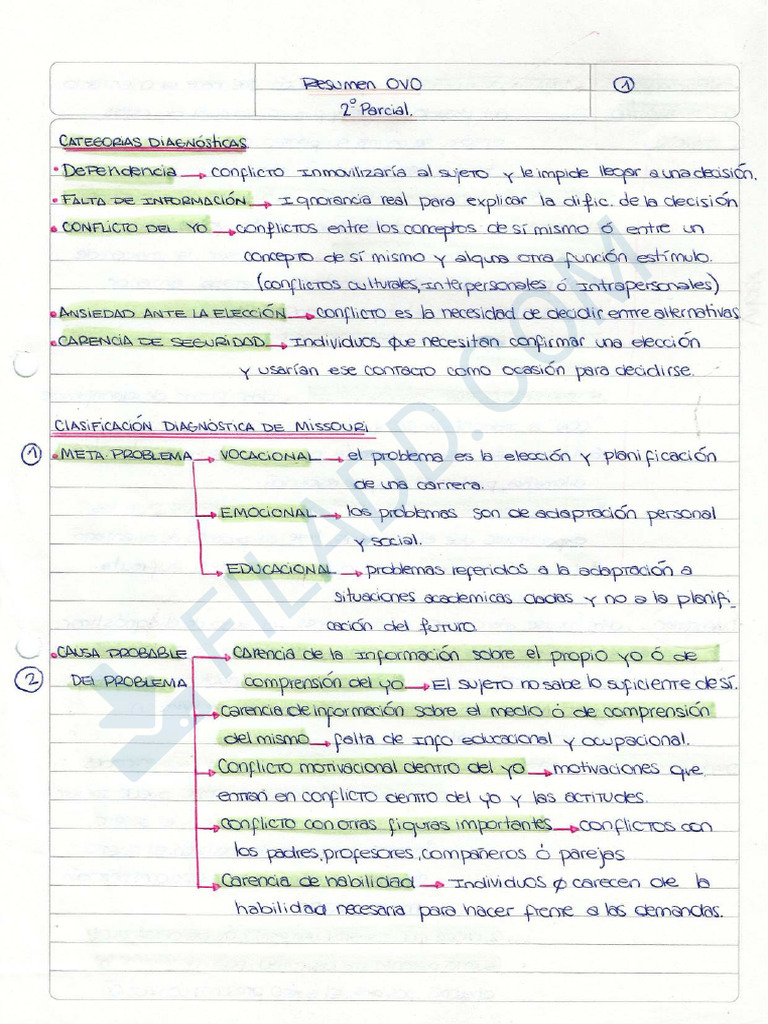 Resumen OVO
①
2º Parcial.
CATEGORIAS DIAGNÓSTICAS
• Dependencia → conflicto inmovilizaría al sujeto y le impide llegar a una decisión.
• FALTA DE INFORMACIÓN → Ignorancia real para explicar la dific. de la decisión
• CONFLICTO DEL YO → conflictos entre los conceptos de sí mismo ó entre un
concepto de sí mismo y alguna otra función estímulo.
(conflictos culturales, interpersonales ó intrapersonales)
• ANSIEDAD ANTE LA ELECCIÓN → conflicto es la necesidad de decidir entre alternativas
• CARENCIA DE SEGURIDAD → Individuos que necesitan confirmar una elección
y usarían ese contacto como ocasión para decidirse.
CLASIFICACIÓN DIAGNÓSTICA DE MISSOURI
① • META PROBLEMA → VOCACIONAL → el problema es la elección y planificación
de una carrera.
→ EMOCIONAL → los problemas son de adaptación personal
y social.
→ EDUCACIONAL → problemas referidos a la adaptación a
situaciones academicas dadas y no a la planifi-
cación del futuro.
• CAUSA PROBABLE → carencia de la información sobre el propio yo ó de
② DEL PROBLEMA comprensión del yo → El sujeto no sabe lo suficiente de sí.
→ Carencia de información sobre el medio ó de comprensión
del mismo → falta de info educacional y ocupacional.
→ Conflicto motivacional dentro del yo → motivaciones que
entran en conflicto dentro del yo y las actitudes.
→ conflicto con otras figuras importantes → conflictos con
los padres, profesores, compañeros ó parejas
→ Carencia de habilidad → Individuos q carecen de la
habilidad necesaria para hacer frente a las demandas.
FILADD.COM